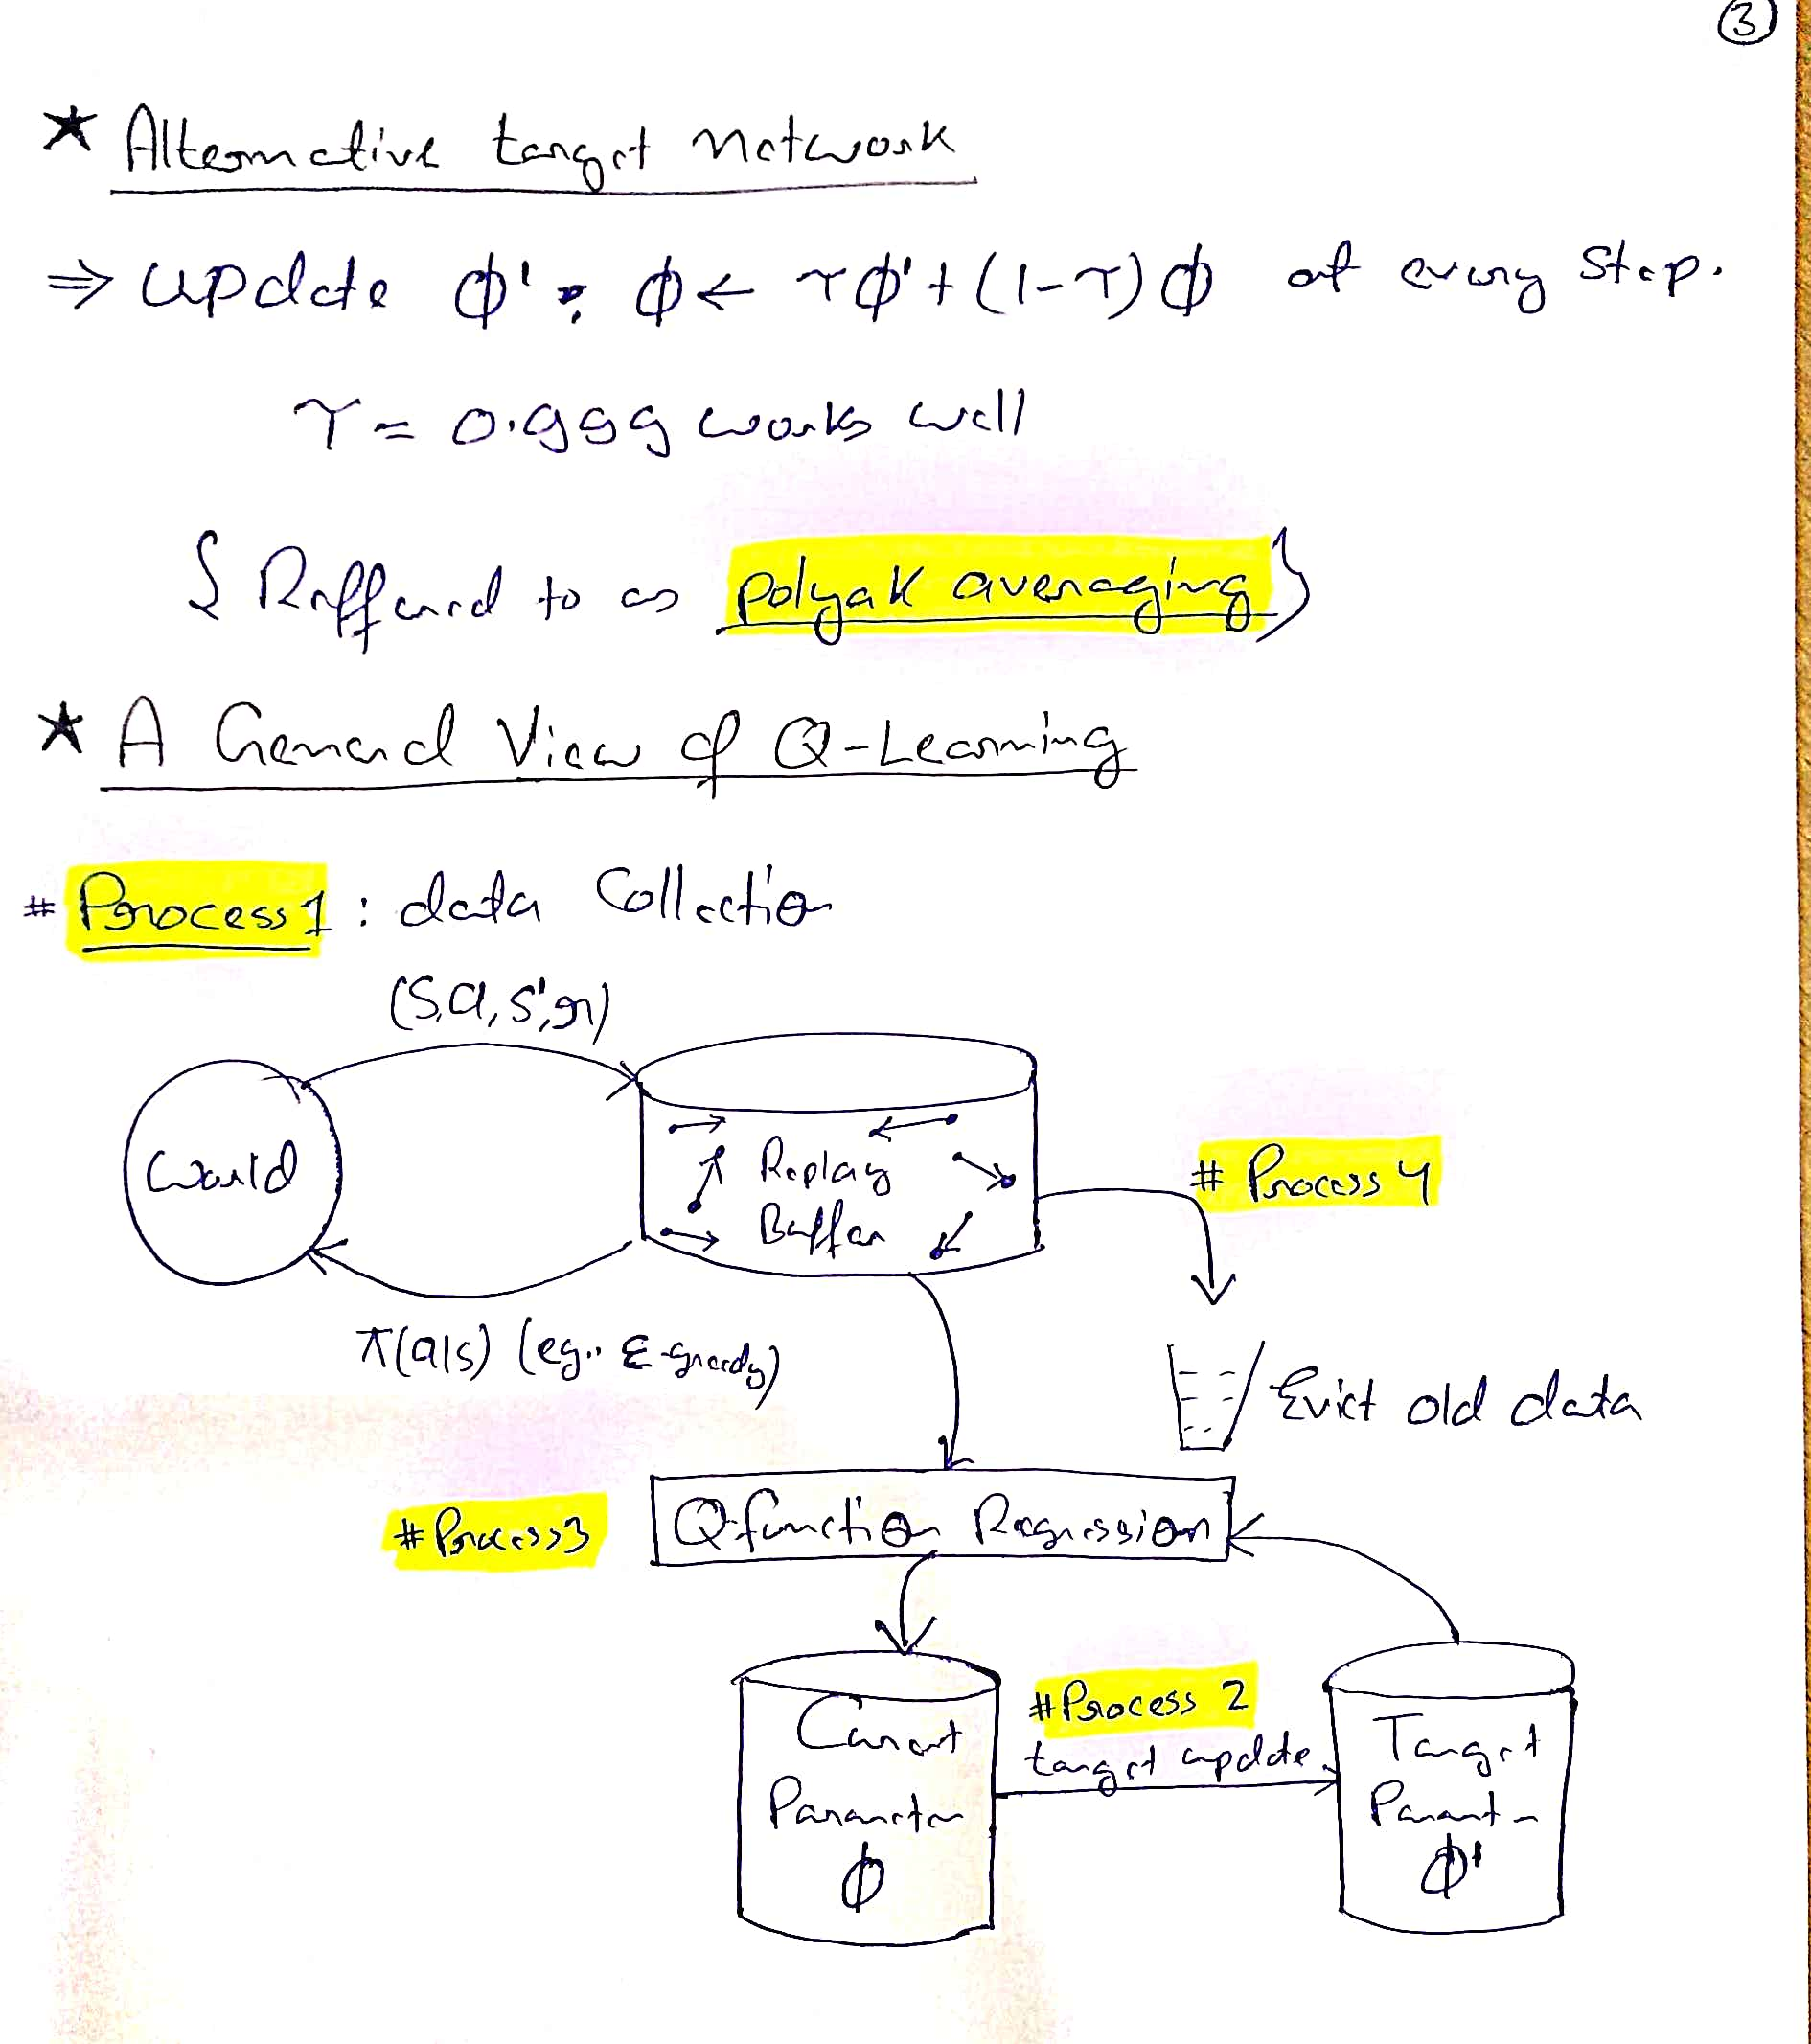 ③
★ Alternative target network
⇒ Update ϕ' : ϕ ← τϕ' + (1-τ)ϕ at every step.
τ = 0.999 works well
{ Reffered to as polyak averaging }
★ A General View of Q-Learning
# Process 1 : data Collection
(s,a,s',r)
World
Replay
Buffer
# Process 4
π(a|s) (eg.. ε-greedy)
Evict old data
# Process 3
Q-function Regression
# Process 2
target update
Current
Parameter
ϕ
Target
ϕ'